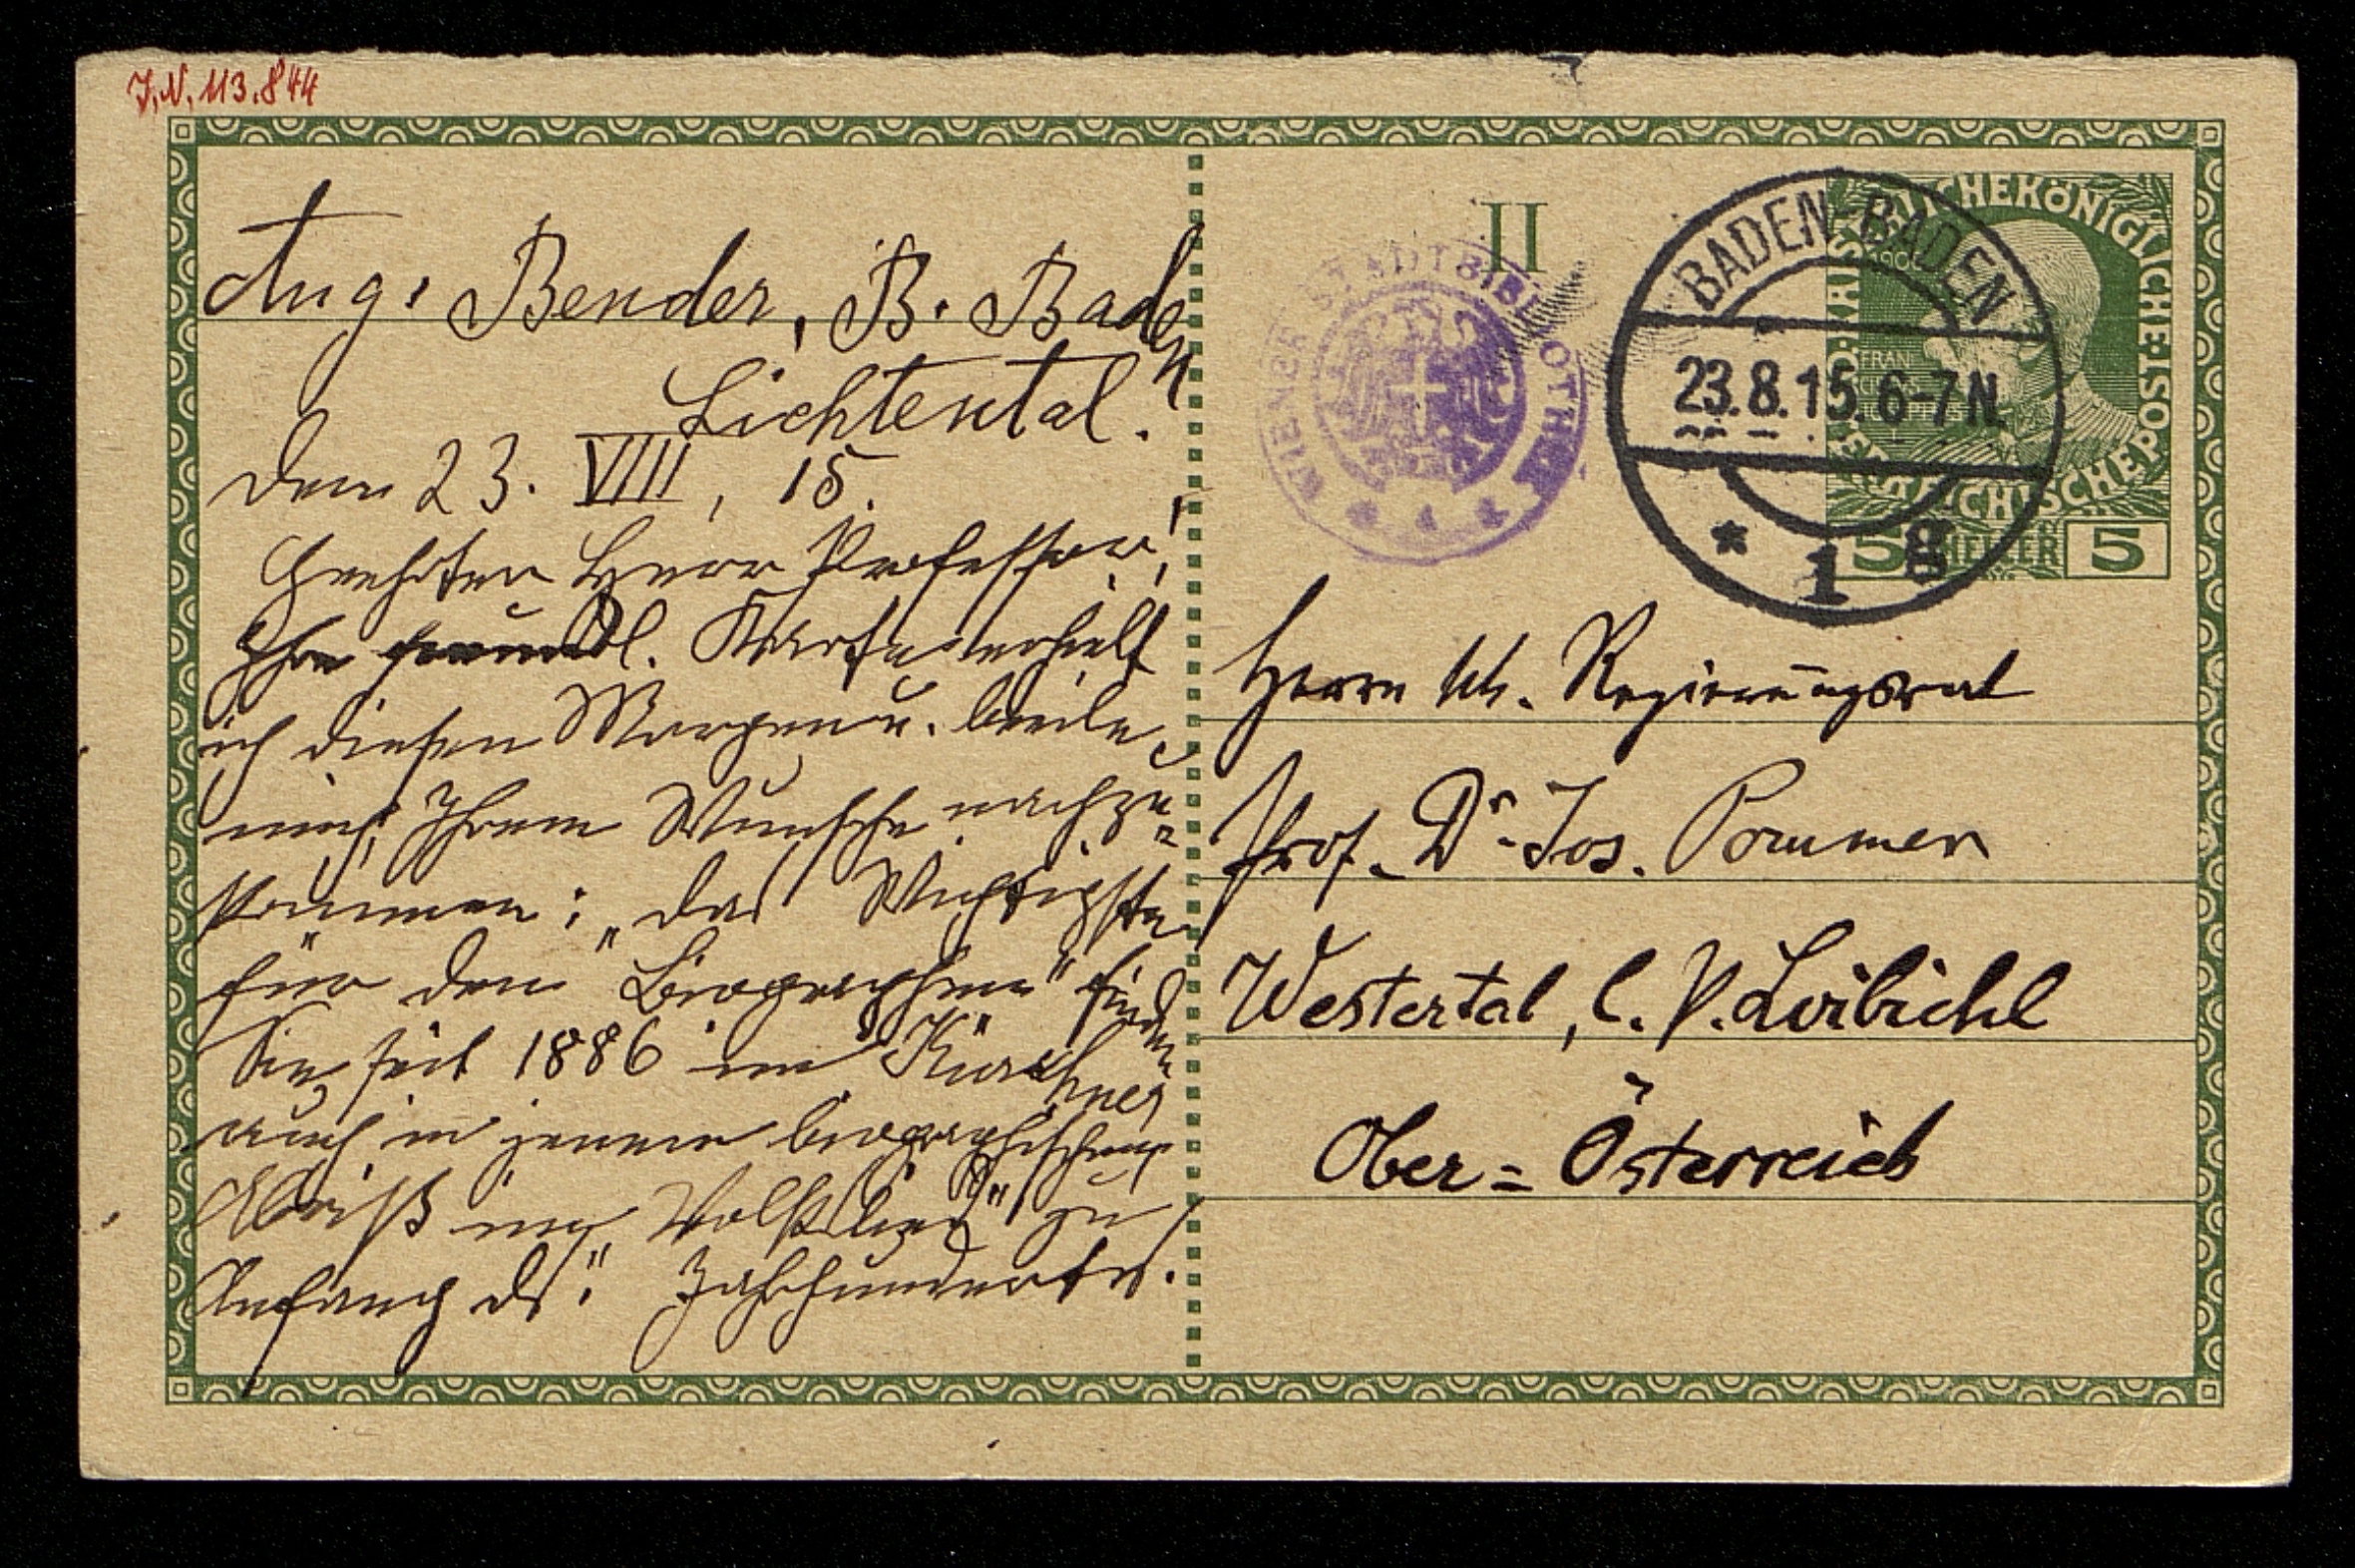 J.N. 113.844
Aug. Bender, B. Baden
Lichtental.
Dem 23. VIII, 15.
Geehrter Herr Professor!
Ihre freundl. Karte erhielt
ich diesen Morgen u. beeile
mich, Ihrem Wunsche nachzu=
kommen: „das Wichtigste
für den Biographen" finden
Sie seit 1886 im Kürschner
auch in jenem biographischen
Abriß im „Volkslied" zu
Anfang ds. Jahrhunderts.
II
WIENER STADTBIBLIOTHEK
BADEN-BADEN
23.8.15. 6-7N.
* 1 g
KAISERLICHE KÖNIGLICHE ÖSTERREICHISCHE POST
5 HELLER 5
Herrn kk. Regierungsrat
Prof. Dr. Jos. Pommer
Westertal, C. P. Loibichl
Ober=Österreich